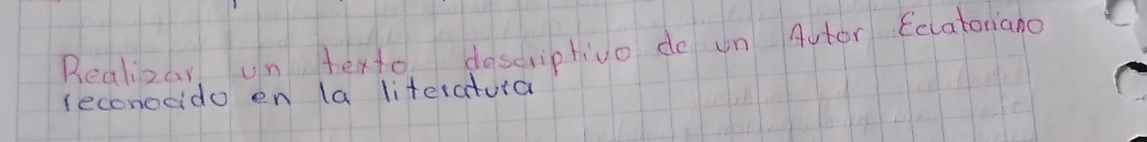 Realizar un texto descriptivo de un Autor Ecuatoriano
reconocido en la literatura